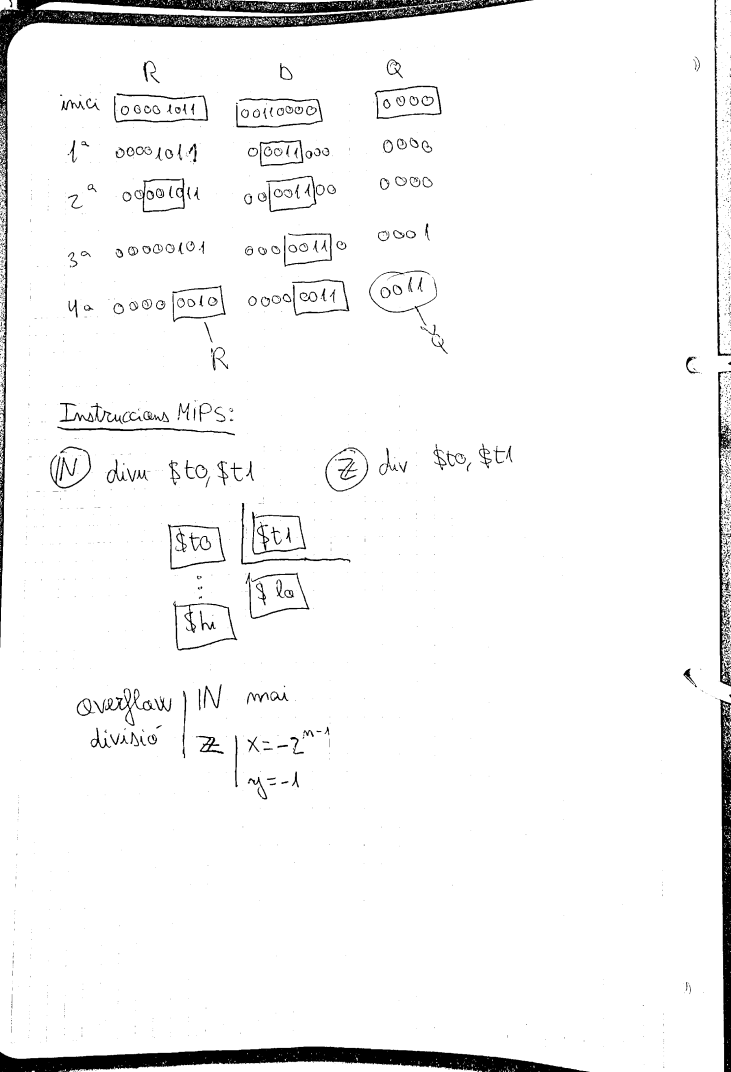 R D Q
inici 00001011 00110000 0000
1ª 00001011 00011000 0000
2ª 00001011 00001100 0000
3ª 00000101 00000110 0001
4ª 00000010 00000011 0011
R Q
Instruccions MIPS:
IN divu $t0, $t1 Z div $t0, $t1
$t0 $t1
$hi $lo
Overflow IN mai
divisió Z x=-2^{n-1}
y=-1